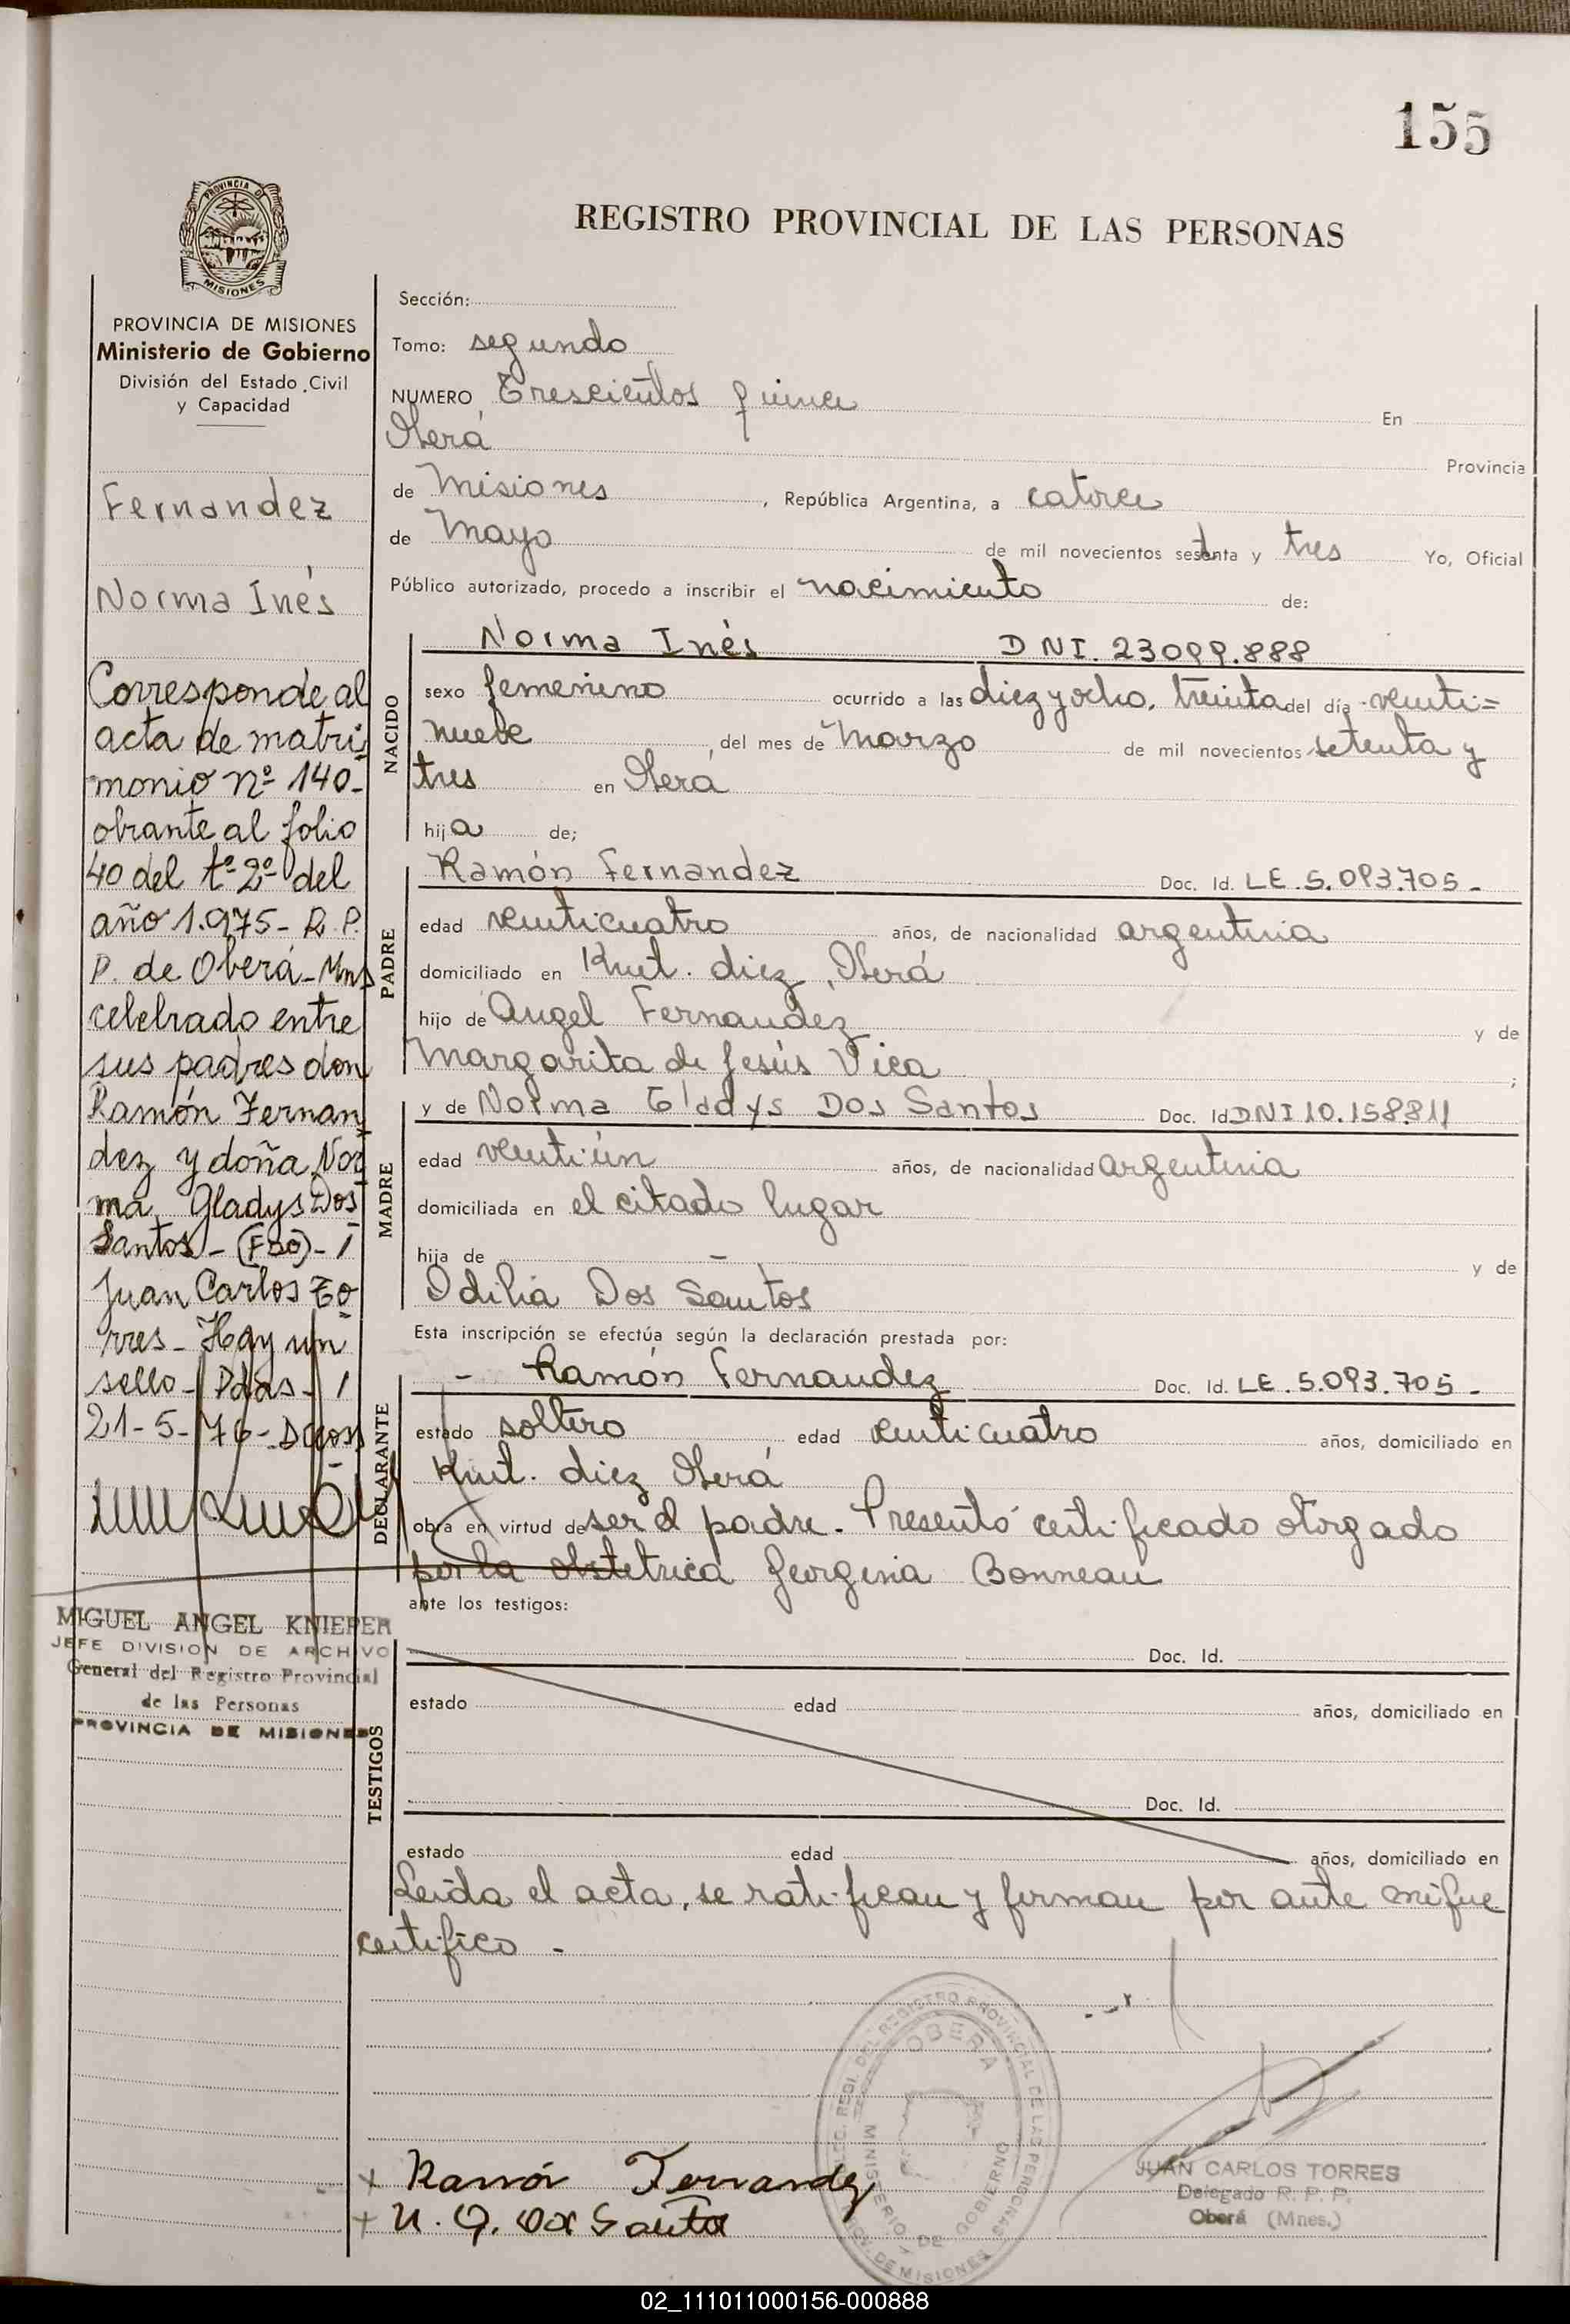 155
PROVINCIA DE
MISIONES
REGISTRO PROVINCIAL DE LAS PERSONAS
PROVINCIA DE MISIONES
Ministerio de Gobierno
División del Estado Civil
y Capacidad
Fernandez
Norma Inés
Corresponde al
acta de matri
monio nº 140-
obrante al folio
40 del tº 2º del
año 1.975- R.P.
P. de Oberá-Mns
celebrado entre
sus padres don
Ramón Fernan
dez y doña Nor
ma Gladys Dos
Santos-(FDO)-
Juan Carlos To
rres- Hay un
sello- Pdas-
21-5-76-
MIGUEL ANGEL KNIEPER
JEFE DIVISION DE ARCHIVO
General del Registro Provincial
de las Personas
PROVINCIA DE MISIONES
Sección:
Tomo: segundo
NUMERO Trescientos quince En
Oberá Provincia
de Misiones, República Argentina, a catorce
de Mayo de mil novecientos setenta y tres Yo, Oficial
Público autorizado, procedo a inscribir el nacimiento de:
NACIDO
Norma Inés DNI. 23099.888
sexo femenino ocurrido a las diez y ocho, treinta del día venti=
nueve, del mes de Marzo de mil novecientos setenta y
tres en Oberá
hija de;
PADRE
Ramón Fernandez Doc. Id. LE.5.093.705-
edad venticuatro años, de nacionalidad argentina
domiciliado en Knut. diez, Oberá
hijo de Angel Fernandez y de
Margarita de Jesús Vica;
MADRE
y de Norma Gladys Dos Santos Doc. Id DNI 10.158811
edad ventiún años, de nacionalidad argentina
domiciliada en el citado lugar
hija de — y de
Idilia Dos Santos
Esta inscripción se efectúa según la declaración prestada por:
DECLARANTE
- Ramón Fernandez Doc. Id. LE.5.093.705-
estado soltero edad venticuatro años, domiciliado en
Knut. diez Oberá
obra en virtud de ser el padre. Presentó certificado otorgado
por la obstetrica Georgina Bonneau
ante los testigos:
TESTIGOS
Doc. Id.
estado edad años, domiciliado en
Doc. Id.
estado edad años, domiciliado en
Leída el acta, se ratifican y firman por ante mí que
certifico-
OBERA
MINISTERIO DE GOBIERNO
+ Ramón Fernandez
+ N. G. Dos Santos
JUAN CARLOS TORRES
Delegado R. P. P.
Oberá (Mnes.)
02_111011000156-000888